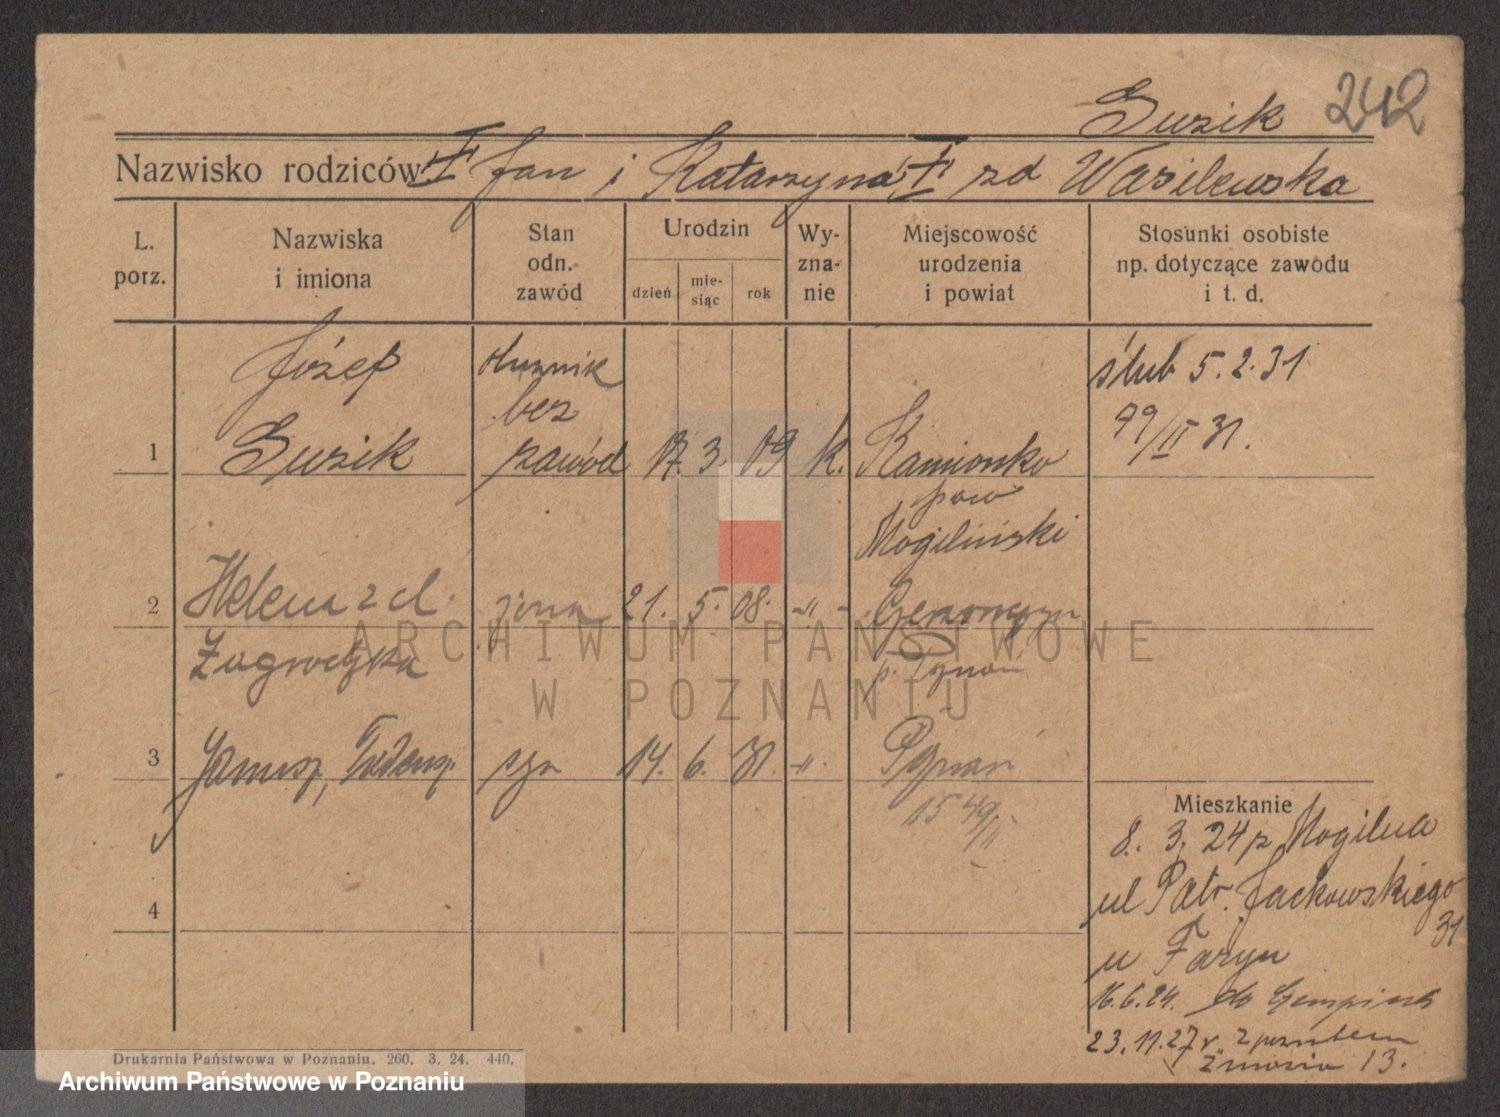 Guzik 242
Nazwisko rodziców Jan i Katarzyna zd Wasilewska
L. porz.
Nazwiska i imiona
Stan odn. zawód
Urodzin
dzień
mie-siąc
rok
Wy-zna-nie
Miejscowość urodzenia i powiat
Stosunki osobiste np. dotyczące zawodu i t. d.
Józef
bez
ślub 5.2.31
79/II 31.
1 Guzik zawód 17. 3. 09 k. Kamionko
pow
Mogiliński
2 Helena zd. żona 21. 5. 08. -"-
p. Poznań
3 Janusz, Tadeusz syn 14. 6. 31. -"- Poznań
15 49/II
4
Mieszkanie
8. 3. 24 z Mogilna
ul Patr. Jackowskiego
31
u
16.6.24. do
23.11.27
13.
Drukarnia Państwowa w Poznaniu. 260. 3. 24. 440.
ARCHIWUM PAŃSTWOWE
W POZNANIU
Archiwum Państwowe w Poznaniu